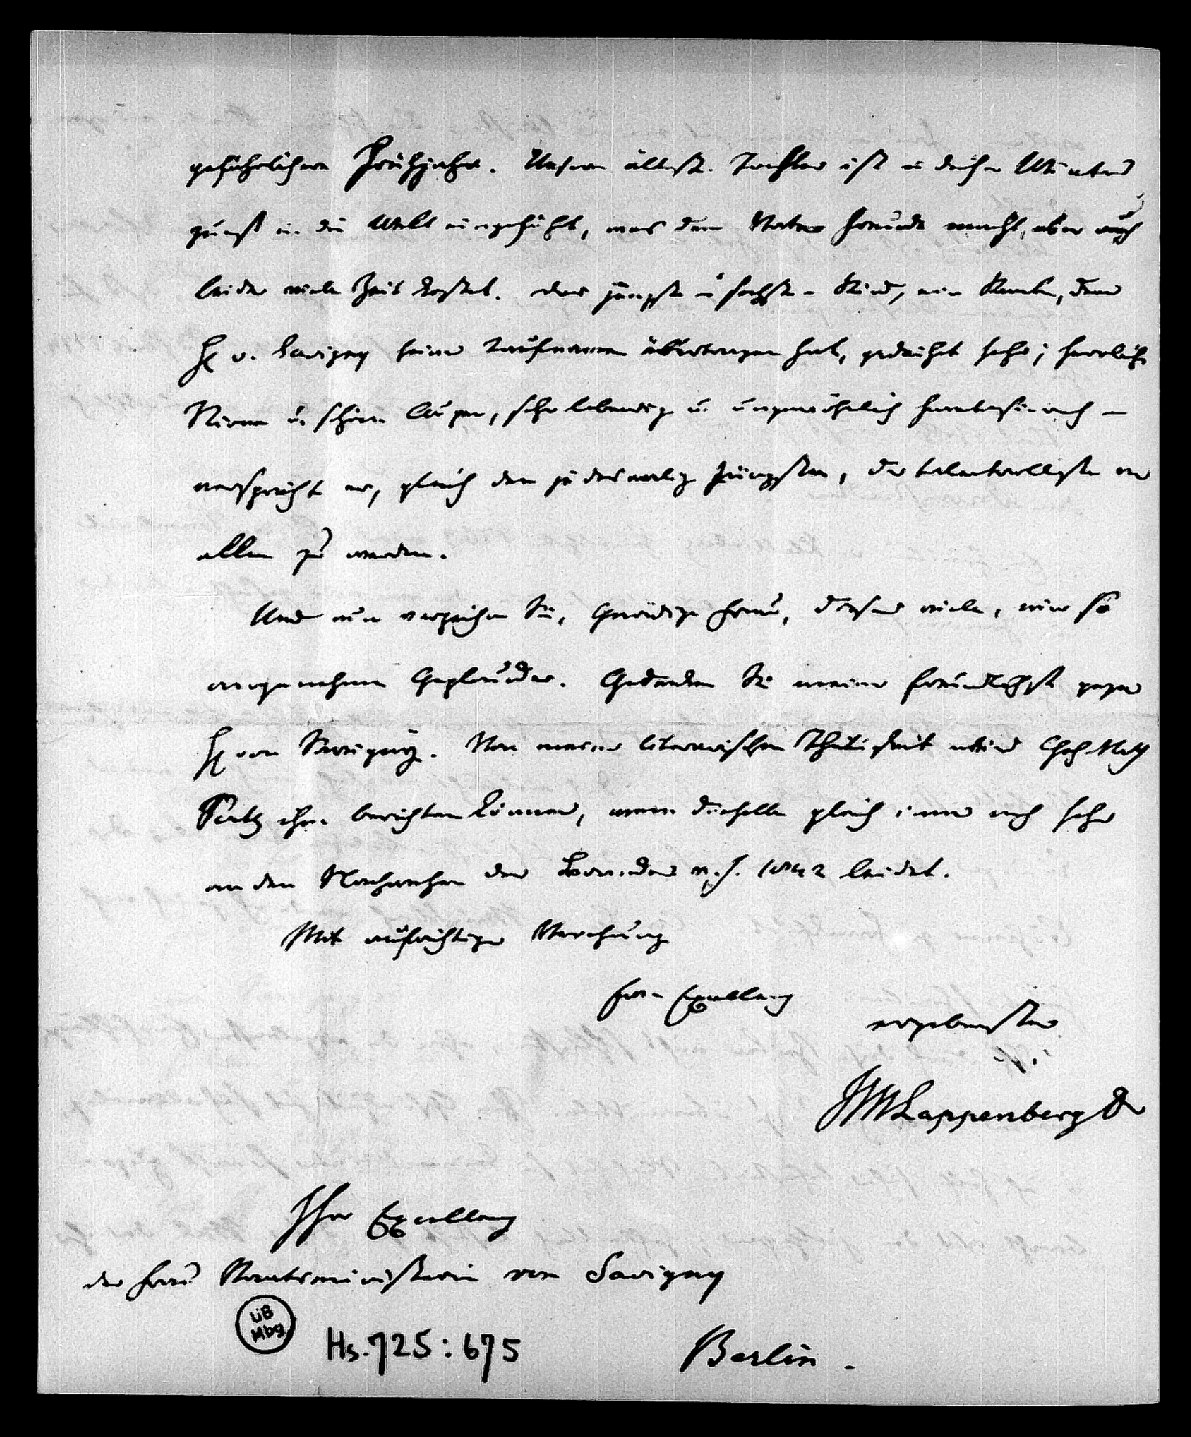 gefährlichen Frühjahr. Unsere älteste Tochter ist in diesem Winter
zuerst in die Welt eingeführt, was dem Vater Freude macht, aber auch
leider viele Zeit kostet. Das jüngste u sechste Kind, ein Knabe, dem
H v. Savigny seine Taufnamen übertragen hat, gedeiht sehr; herrliche
Stirne u. schöne Augen, sehr lebendig u. ungewöhnlich
verspricht er, gleich dem jedesmalig Jüngsten, der talentvollste von
allen zu werden.
Und nun verzeihen Sie, Gnädige Frau, dieses viele, mir so
angenehme Geplauder. Gedenken Sie meiner freundlichst gegen
H von Savigny. Von meiner literarischen Thätigkeit wird Geh. Rath
Pertz ihm berichten können, wenn dieselbe gleich immer noch sehr
an den Nachwehen der 1842 leidet.
Mit aufrichtiger Verehrung
Euer Excellenz
ergebenster
JMLappenberg Dr
Ihrer Excellenz
der Frau Staatsministerin von Savigny
Berlin.
UB
Mbg
Hs. 725:675